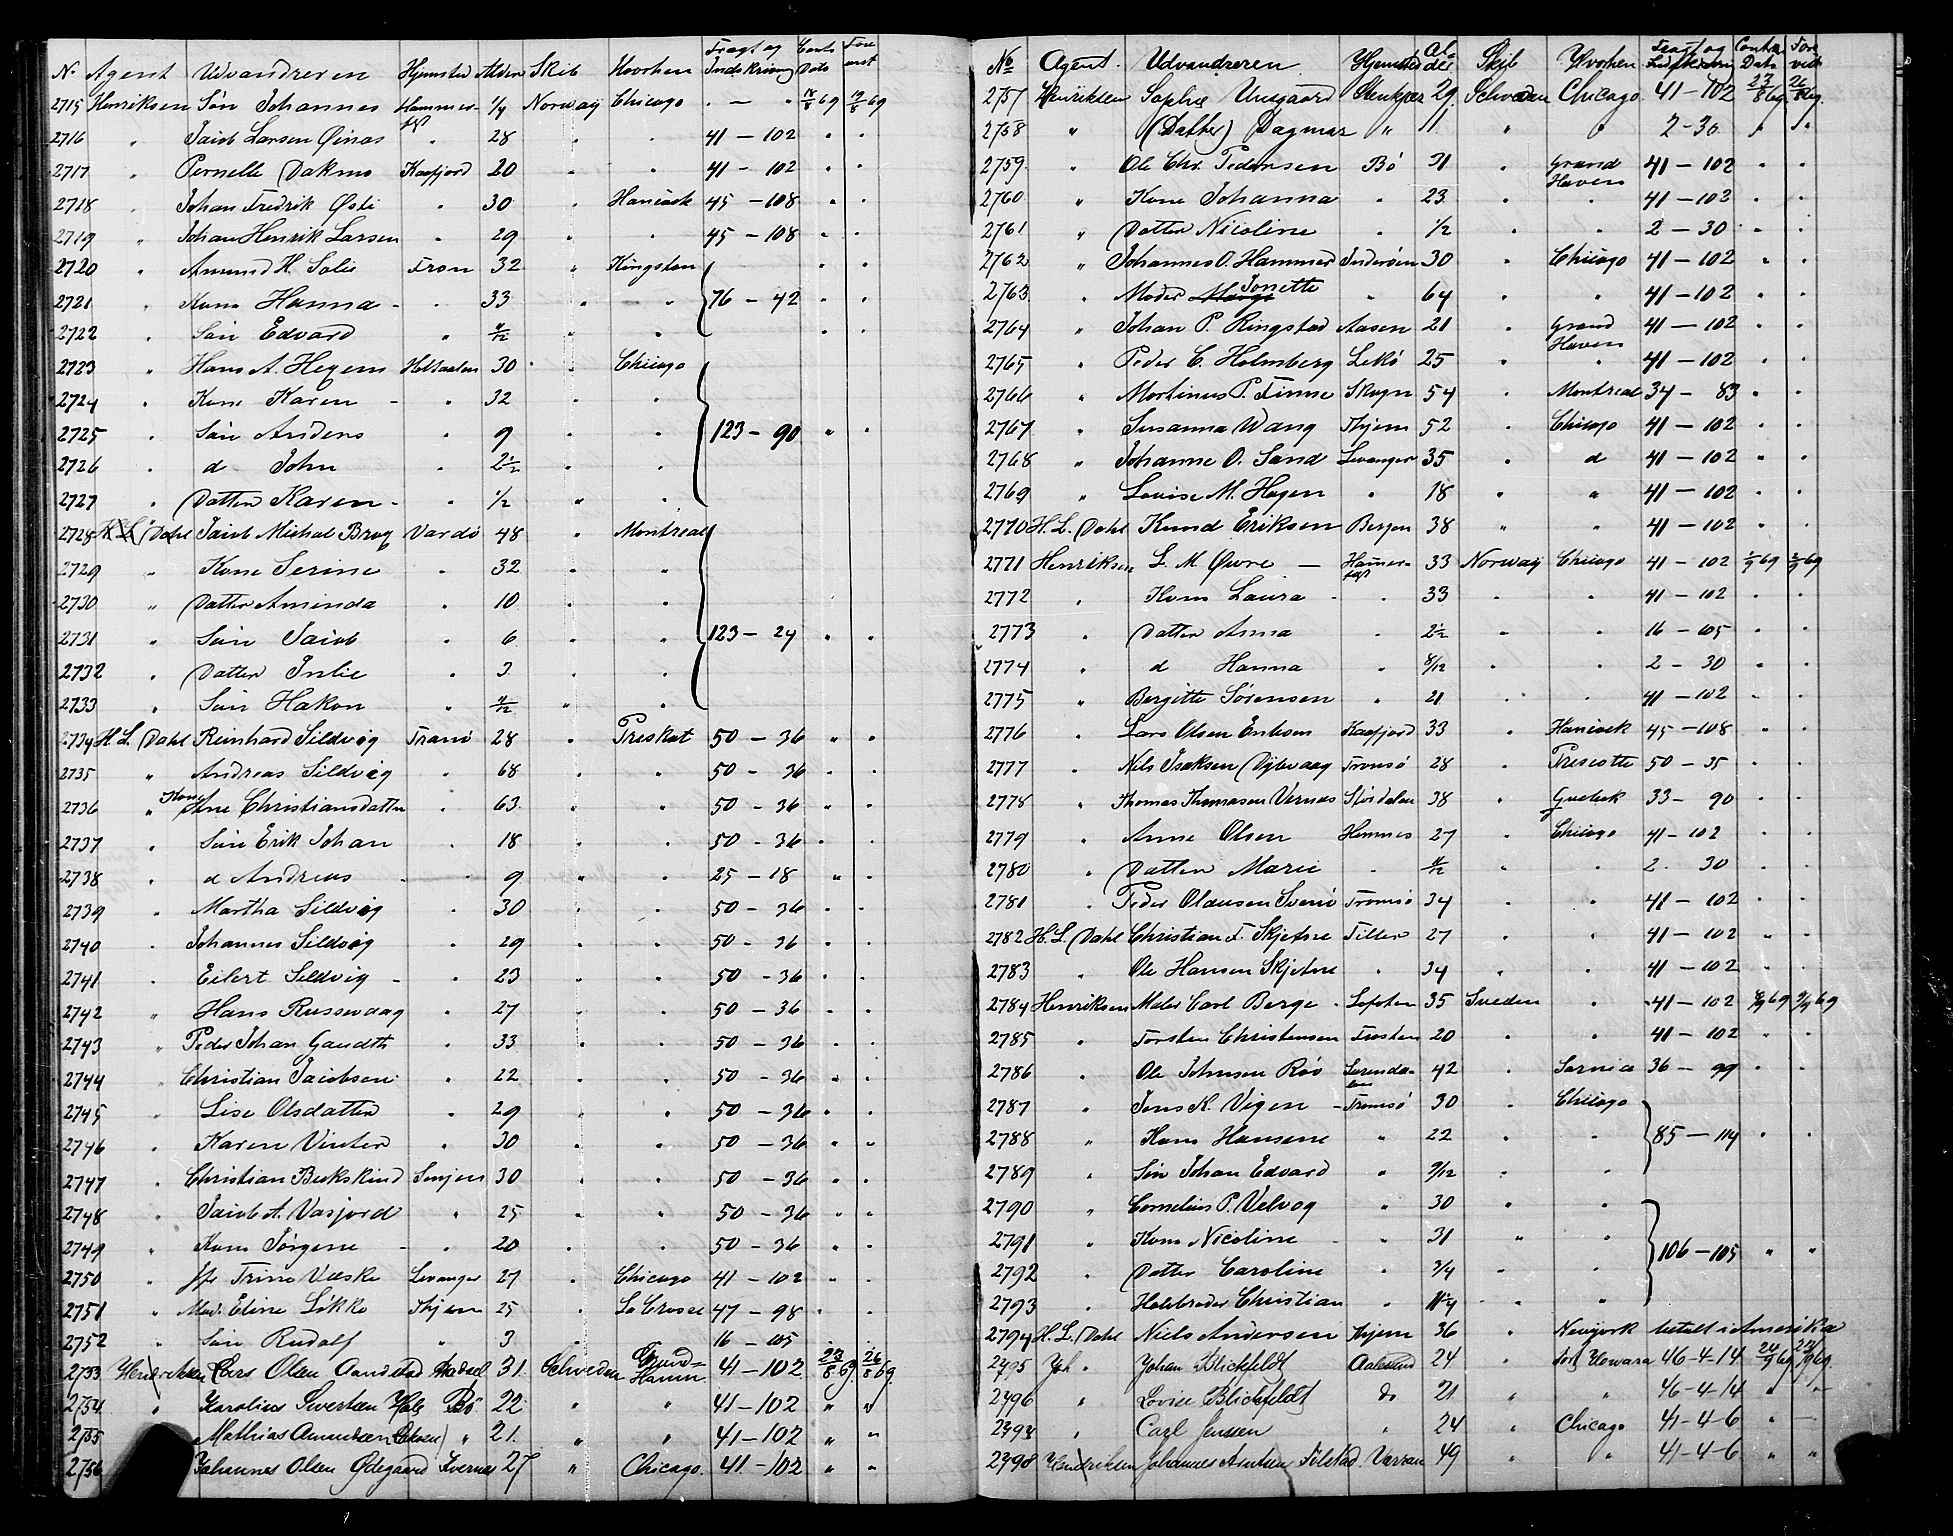 No Agent Udvandreren Hjemsted Alder Skib Hvorhen Fragt og Indskrivng Conts Dato Fore
2715 Henriksen Søn Johannes Hammerfest 1/4 Norway Chicago " — " 69 69
2716 " Jacob Larsen " 28 " " 41 — 102 " "
2717 " Pernelle Kaafjord 20 " " 41 — 102 " "
2718 " Johan Fredrik " 30 " Hancock 45 — 108 " "
2719 " Johan Henrik Larsen " 29 " " 45 — 108 " "
2720 " Amund H. Fron 32 " Kingston " "
2721 " Kone Hanna - " 33 " " 76 — 42 " "
2722 " Søn Edvard " " " " "
2723 " Hans A. Hegem Holtaalen 30 " Chicago
2724 " Kone Karen - " 32 " "
2725 " Søn Anders " 9 " " 123 — 90 " "
2726 " d John " 2½ " "
2727 " Datter Karen - " ½ " "
2728 Dahl Jacob Michal Vardö 48 " Montreal
2729 " Kone Serine " 32 " "
2730 " Datter Aminda " 10 " "
2731 " Søn Jacob " 6 " " 123 — 24 " "
2732 " Datter Julie " 3 " "
2733 " Søn Hakon " " "
2734 H. L. Dahl Reinhard Sildvig Tranö 28 " Preskot 50 — 36 " "
2735 " Andreas Sildvig " 68 " " 50 — 36 " "
2736 " Kone Ane Christiansdatter " 63 " " 50 — 36 " "
2737 " Søn Erik Johan " 18 " " 50 — 36 " "
2738 " d Andreas - " 9 " " 25 — 18 " "
2739 " Martha Sildvig " 30 " " 50 — 36 " "
2740 " Johannes Sildvig " 29 " " 50 — 36 " "
2741 " Eilert Sildvig - " 23 " " 50 — 36 " "
2742 " Hans Russevaag " 27 " " 50 — 36 " "
2743 " Peder Johan " 33 " " 50 — 36 " "
2744 " Christian Jacobsen " 22 " " 50 — 36 " "
2745 " Lise Olsdatter " 29 " " 50 — 36 " "
2746 " Karen Vinter " 30 " " 50 — 36 " "
2747 " Christian Bukskind Senjen 30 " " 50 — 36 " "
2748 " Jacob A. Vasjord " 25 " " 50 — 36 " "
2749 " Kone Jørgene - " 20 " " 50 — 36 " "
2750 " Jfr Trine Levanger 27 " Chicago 41 — 102 " "
2751 " Mad. Eline Løkke Thjem 25 " La Crosse 47 — 98 " "
2752 " Søn Rudolf " 3 " 16 — 105
2753 Hendriksen Lars Olsen 31. Schweden Grand Haven 41 — 102 23/8 69. 26/8 69
2754 " Karolius Sivertsen Bö. 22. " " 41 — 102 " "
2755 " Mathias " 21. " " 41 — 102 " "
2756 Johannes Olsen Ødegaard 27 " Chicago. 41 — 102 " "
No Agent. Udvandreren Hjemsted Alder Skib Hvorhen Fragt og Contra Dato
2757 Henriksen Sophie Stenkjær 29. Schweden Chicago. 41 — 102 23/8 69. 26/8 69.
2758 " (Datter) Dagmar " 1 " " 2 - 30 " "
2759 " Ole Chr. Pedersen Bö 31 " Grand Haven 41 — 102 " "
2760 " Kone Johanna " 23 " " 41 — 102 " "
2761 " Datter Nicoline " ½ " " 2 — 30 " "
2762 " Johannes O. Hammer Inderöen 30 " Chicago 41 — 102 " "
2763 " Moder Jonette " 64 " " 41 — 102 " "
2764 " Johan P. Ringstad Aasen 21 " Grand Haven 41 — 102 " "
2765 " Peder C. Holmberg Lekö 25 " " 41 — 102 " "
2766 " Mortinus P. Finne Skogn 54 " Montreal 34 — 83 " "
2767 " Susanna Wang Thjem 52 " Chicago 41 — 102 " "
2768 " Johanne O. Sand Levanger 35 " d 41 — 102 " "
2769 " Lovise M. Hagen " 18 " " 41 — 102 " "
2770 H. L. Dahl Knud Eriksen Bergen 38 " " 41 — 102 " "
2771 Henriksen L. M. Øvre — Hammerfest 33 Norway Chicago 41 — 102 69 69
2772 " Kone Laura - " 33 " " 41 — 102 " "
2773 " Datter Anna " 2½ " " 16 — 105 " "
2774 " d Hanna " 8/12 " " 2 — 30 " "
2775 " Bergitte Sørensen " 21 " " 41 — 102 " "
2776 " Lars Olsen Kaafjord 33 " Hancock 45 — 108 " "
2777 " Nils Isaksen Tromsö 28 " Prescotte 50 — 35 " "
2778 " Thomas Thomasen Vernes Störddalen 38 " Quebek 33 — 90 " "
2779 " Anne Olsen Hemnes 27 " Chicago 41 — 102 " "
2780 " Datter Marie " " " 2 30 " "
2781 " Peder Olausen Tromsö 34 " " 41 — 102 " "
2782 H. L. Dahl Christian F. Skjetne Tiller 27 " " 41 — 102 " "
2783 " Ole Hansen Skjetne " 34 " " 41 — 102 " "
2784 Henriksen Maler Carl Berge - 35 Sveden " 41 — 102 69 69
2785 " Torsten Christensen Frosten 20 " " 41 — 102 " "
2786 " Ole Johnsen Röö Surendalen 42 " Sarnia 36 — 99 " "
2787 " Jens K. Vigen - Tromsö 30 " Chicago
2788 " Kone Hansine " 22 " " 85 — 114 " "
2789 " Søn Johan Edvard " 9/12 " "
2790 " Cornelius P. " 30 " "
2791 " Kone Nicoline " 31 " " 106 — 105 " "
2792 " Datter Caroline " 3/4 " "
2793 " Halvbroder Christian " 11¾ " "
2794 H. L. Dahl Niels Andersen Thjem 36 " Newyork betalt i Amerika
2795 Joh " Johan Blickfeldt Aalesund 24 " 46-4-14 24/9 69 69.
2796 " Lovise Blickfeldt do 21 " " 46-4-14 " "
" Carl Jenssen " 24 " Chicago 41-4-6 " —
2798 Hendriksen Johannes Arntsen 49 " " 41-4-6 " "